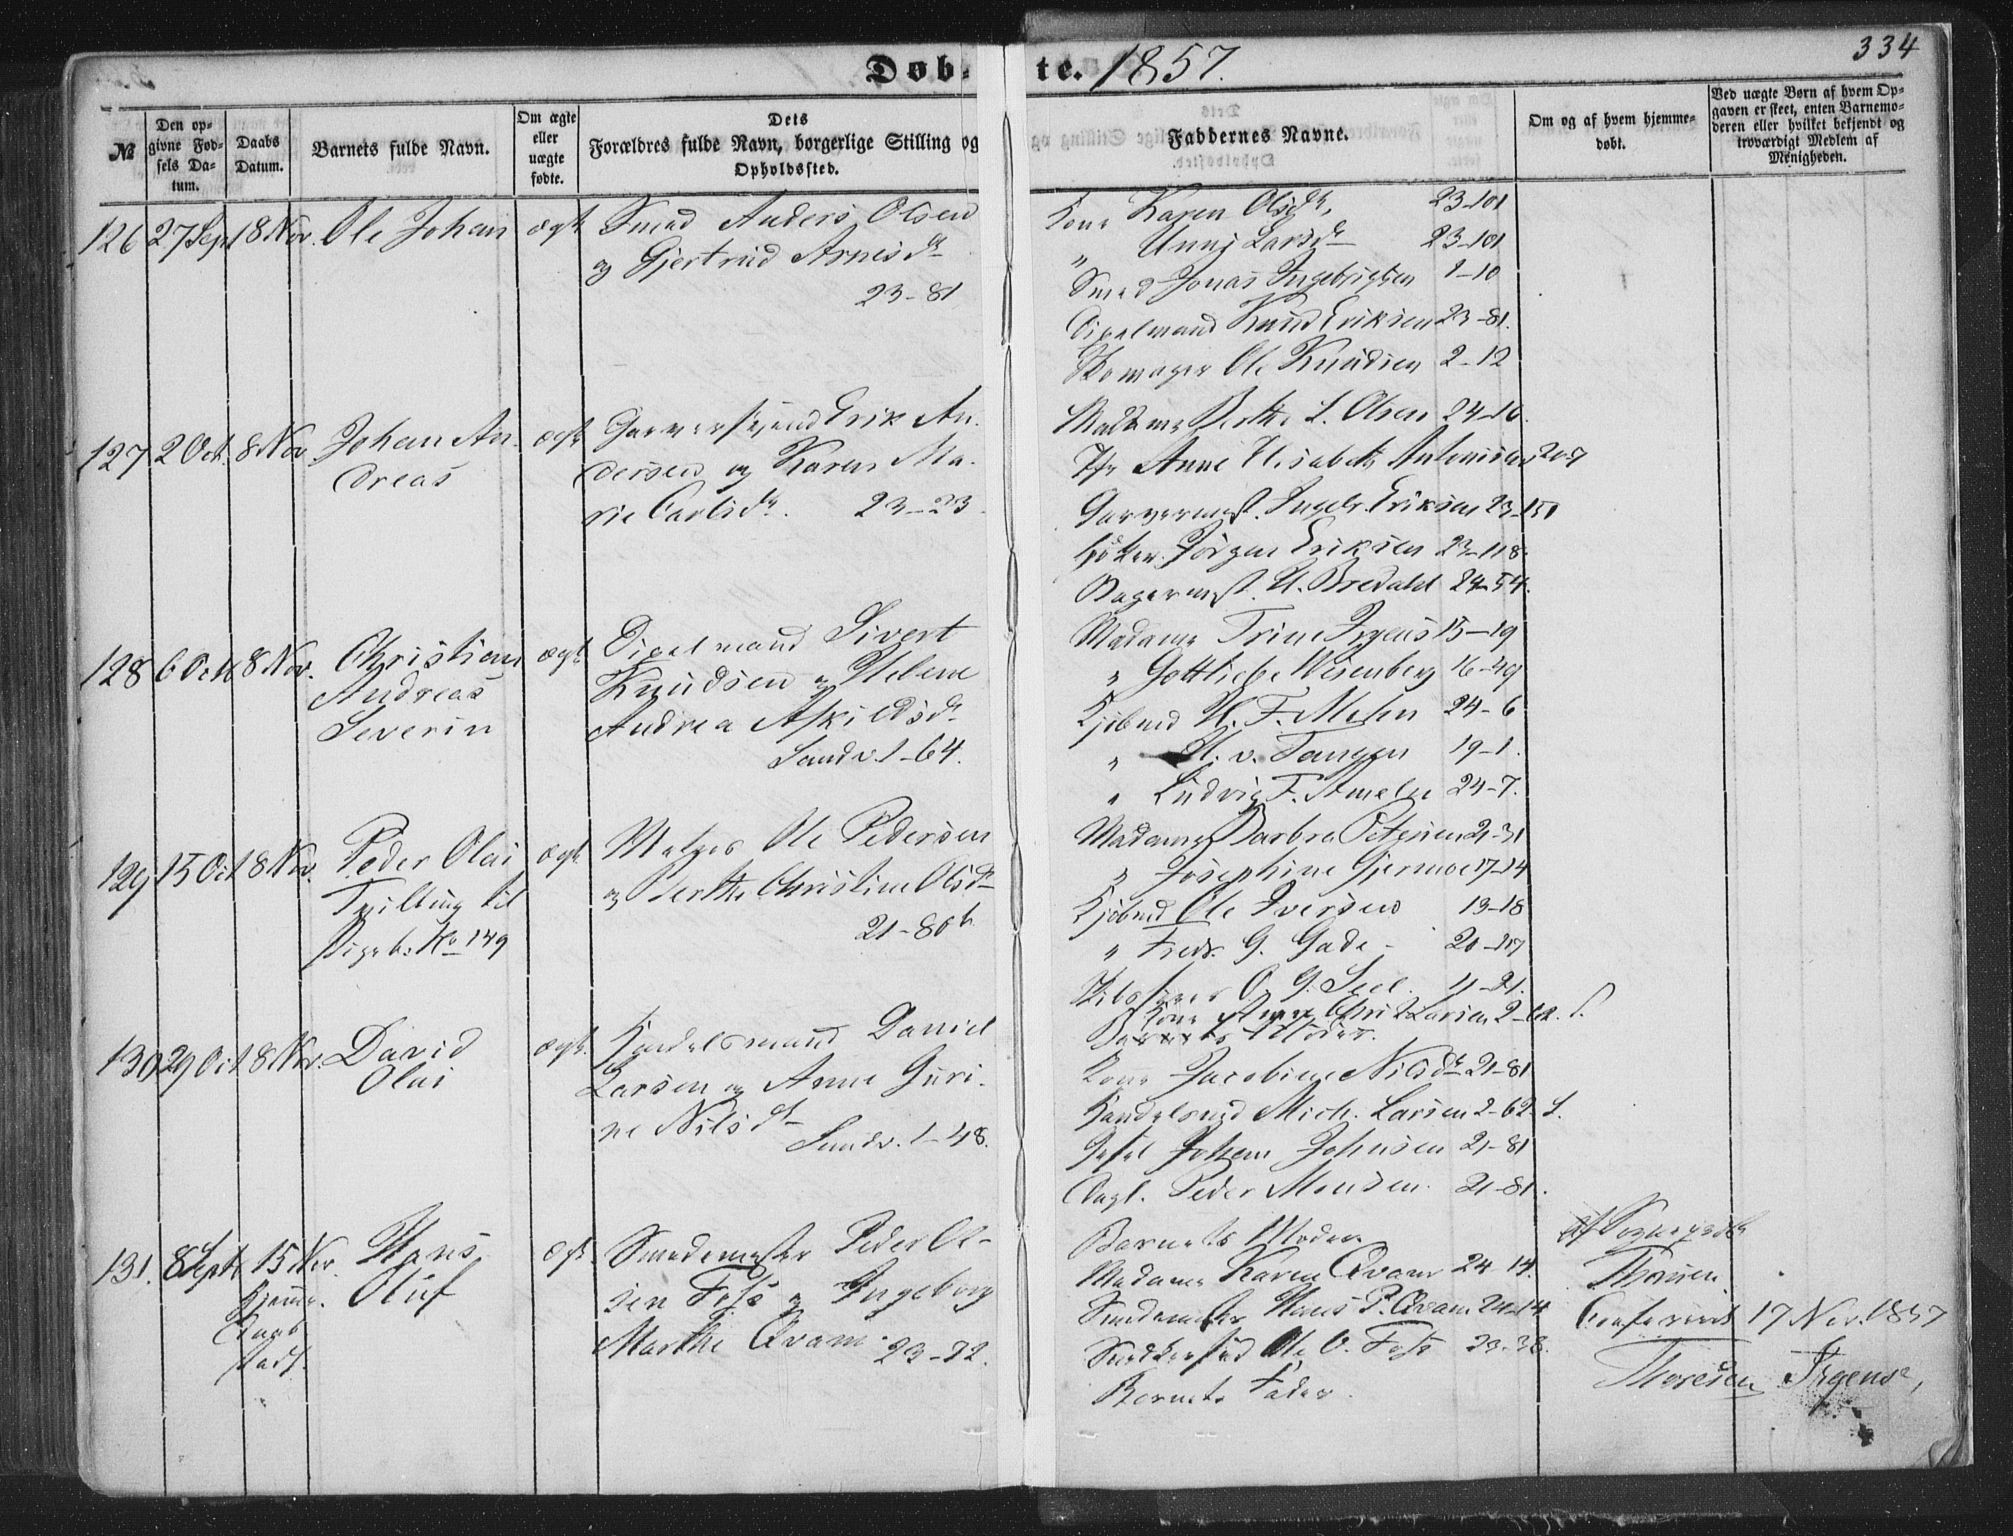 334
Døb- te. 1857.
№
Den op-
givne Fød-
sels Da-
tum.
Daabs
Datum.
Barnets fulde Navn.
Om ægte
eller
uægte
fødte.
Dets
Forældres fulde Navn, borgerlige Stilling og
Opholdssted.
Faddernes Navne.
Om og af hvem hjemme-
døbt.
Ved uægte Børn af hvem Op-
gaven er skeet, enten Barnemo-
deren eller hvilket bekjendt og
troværdigt Medlem af
Menigheden.
126 27 Sept 8 Nov. Ole Johan ægte
Smed Anders Olsen
og Gjertrud Arnesdr
23-81
Kone Karen Olsdr, 23-101
" Unni Larsdr 23-101
Smed Jonas Ingebrigtsen 1-10
Knud Eriksen 23-81.
Skomager Ole Knudsen 2-12
127. 2 Oct. 8 Nov Johan An-
dreas
ægte
Garversvend Erik An-
dersen og Karen Ma-
rie Carlsdr. 23-23.
Madame Berthe L. Olsen 24-16.
Jfr Anne Elisabeth Antonisen 20-7
Garvermst. Ingebr. Eriksen 23-151
Jörgen Eriksen 23-118.
Bagermst. H. Bredahl 24-54.
128 6 Oct 8 Nov. Christian
Andreas
Severin
ægte
Sivert
Knudsen og Helene
Andrea Askildsdr
Sandv. 1-64.
Madame Trine Irgens 15-19
" Gottliebe Wesenberg 16-49
Kjöbmd H. F. Mohn 24-6
" H. v. Tangen 19-1.
" Ludvig F. 24-7.
129 15 Oct 8 Nov. Peder Olai
Tvilling til
Pigeb. No 149
ægte
Ole Pedersen
og Berthe Christine Olsdr
21-80b
Madame Barbra Petersen 21-31
" Josephine Gjermoe 17-14
Kjöbmd Ole Iversen 13-18
" Fredr. G. Gade 20-107
O. G. 11-21.
Kone Christ Larsen 2-62. S.
Barnets Moder.
130 29 Oct 8 Nov. David
Olai
ægte.
Handelsmand Daniel
Larsen og Anne Guri-
ne Nilsdr
Sandv. 1-48.
Kone Jacobine Nilsdr 21-81
Handelsmd Mich. Larsen 2-62 S.
Johan Johnsen 21-81
Dagl. Peder Monsen. 21-81.
131. 8 Septb 15 Nov. Hans
Oluf
Hjemme-
Daab
stadf.
ægte
Smedemester Peder Ol-
sen Foss og Ingeborg
Marthe Qvam. 23-32.
Barnets Moder
Madame Karen Qvam 24-14.
Smedemester Hans P. Qvam 24-14
Ole O. Foss 23-38.
Barnets Fader.
af
Thosen
Confereret 17 Nov. 1857
Irgens,